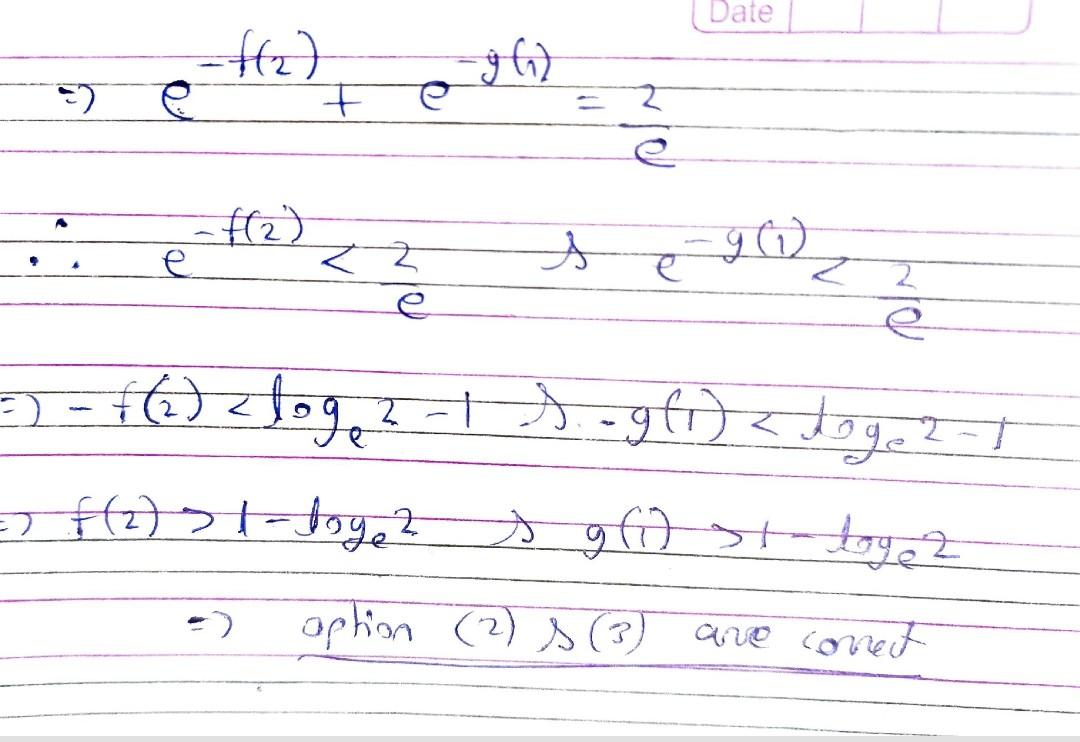 Date
=> e^{-f(2)} + e^{-g(1)} = 2/e
∴ e^{-f(2)} < 2/e & e^{-g(1)} < 2/e
=> -f(2) < log_e 2 - 1 & -g(1) < log_e 2 - 1
=> f(2) > 1 - log_e 2 & g(1) > 1 - log_e 2
=> option (2) & (3) are correct